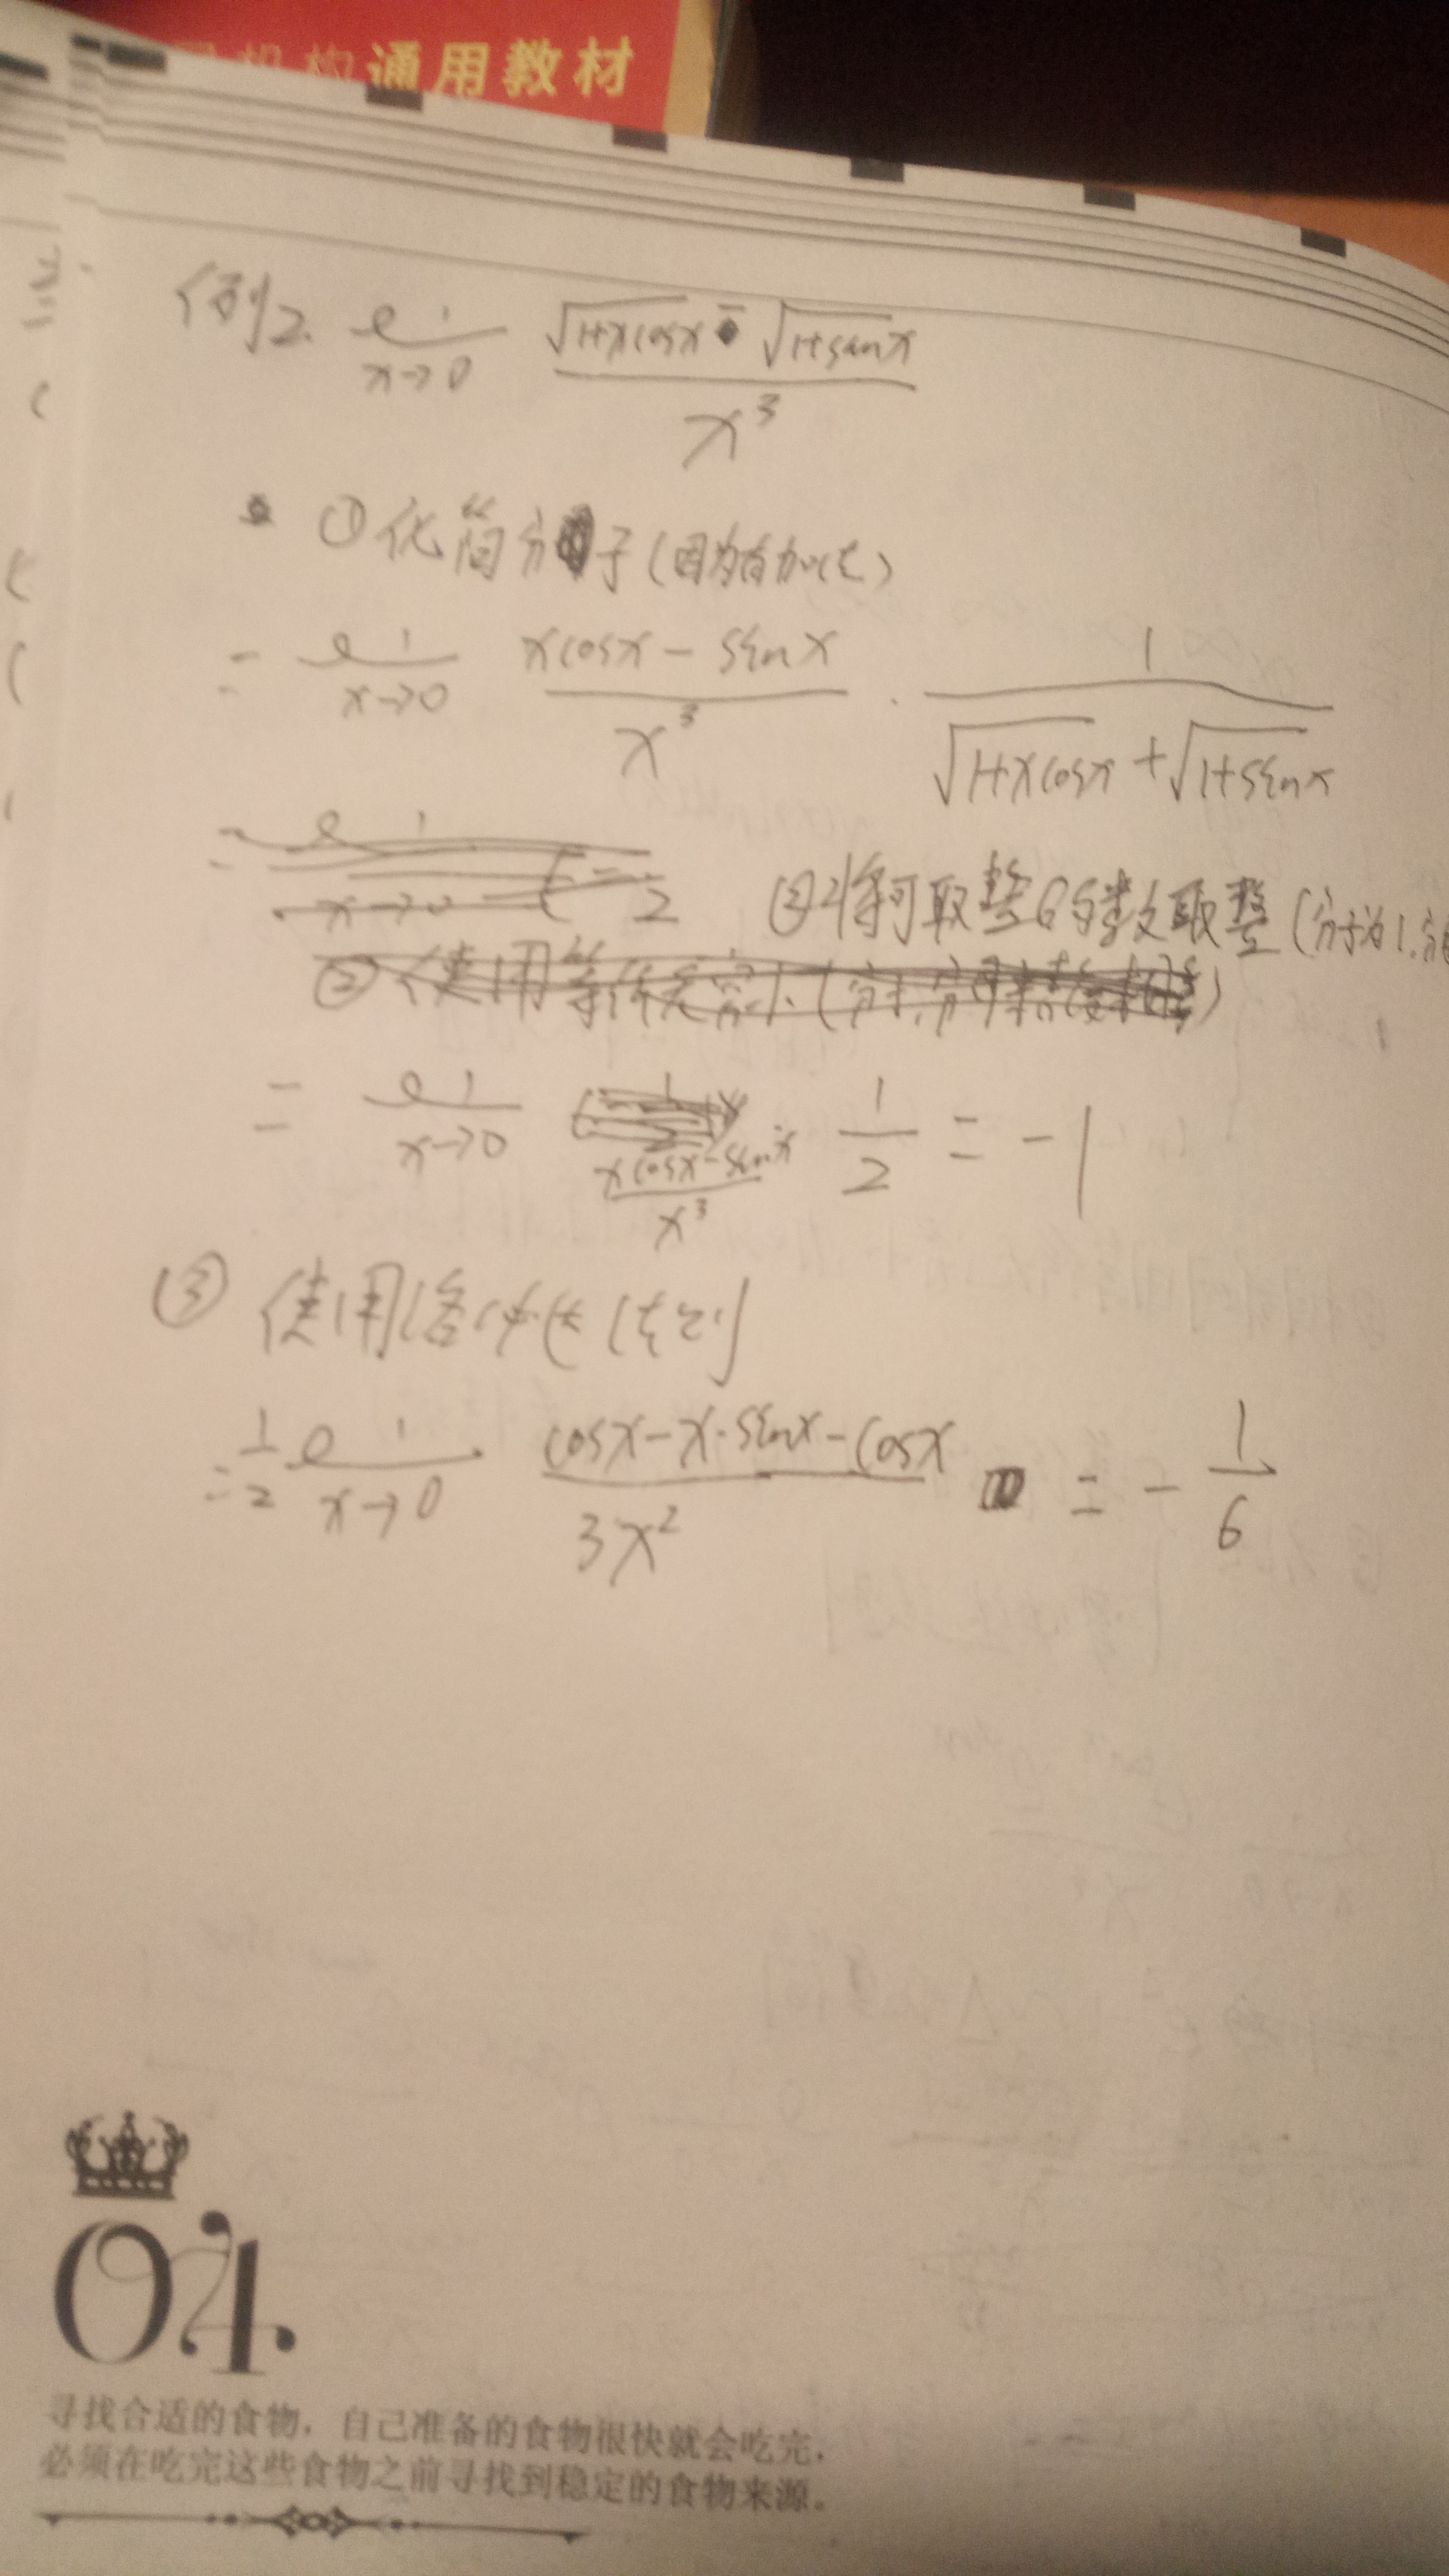 通用教材
例2. lim x→0 (√1+xcosx - √1+sinx) / x³
①化简分子(因为有加减)
= lim x→0 (xcosx - sinx) / x³ · 1 / (√1+xcosx + √1+sinx)
②将可取整的数取整(分子为1.分
= lim x→0 (xcosx - sinx) / x³ · 1/2 = -1
③ 使用洛必达法则
= 1/2 lim x→0 (cosx - x·sinx - cosx) / 3x² = - 1/6
04
寻找合适的食物，自己准备的食物很快就会吃完，
必须在吃完这些食物之前寻找到稳定的食物来源。